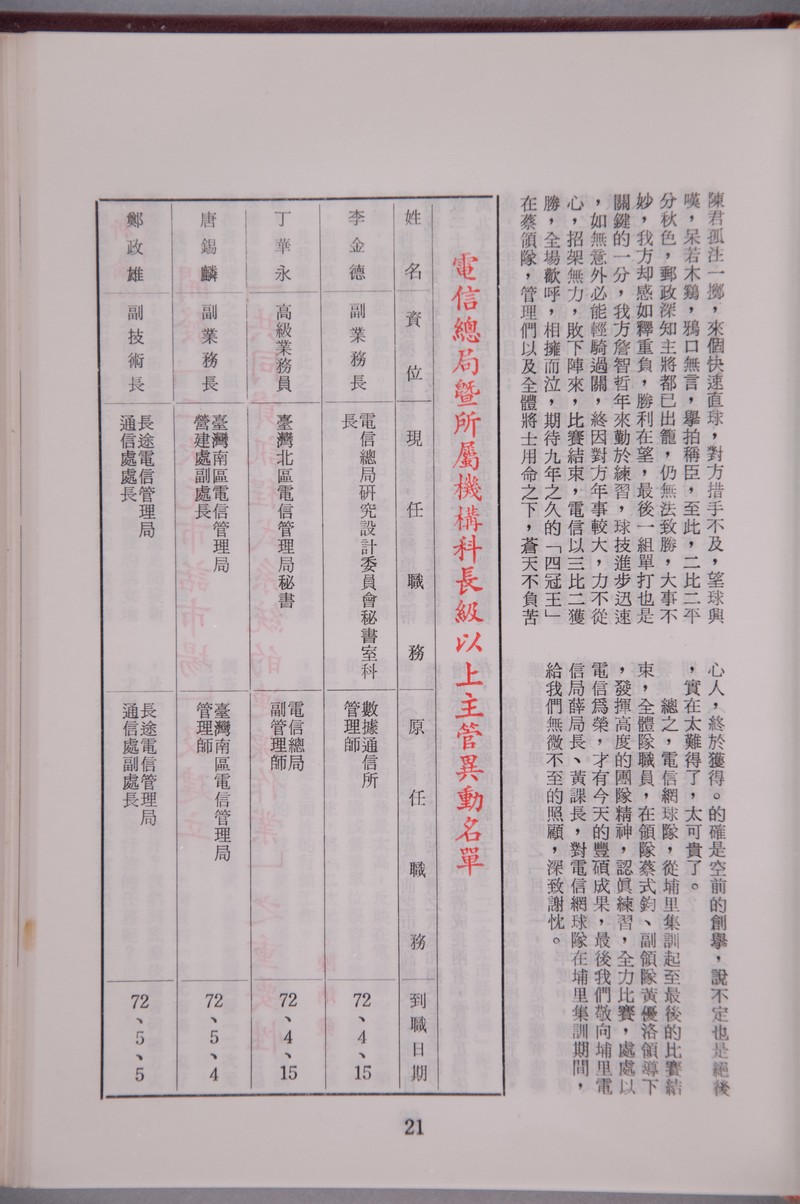 陳君孤注一擲，來個快速直球，對方措手不及，望球興
嘆，呆若木鷄，鴉口無言，舉拍稱臣，至此，二比二平
分秋色，郵政深知主將都已出籠，仍無法致勝，大事不
妙，我方却感如釋重負，勝利在望，最後一組單打也是
關鍵的一分，我方詹智哲年來勤於練習，球技進步迅速
，如無意外必能輕騎過關，終因對方年事較大，力不從
心，招架無力，敗下陣來，比賽結束，電信以三比二獲
勝，全場歡呼，相擁而泣，期待九年之久的「四冠王」
在蔡領隊，管理們以及全體將士用命之下，蒼天不負苦
心人，終於獲得。的確是空前的創舉，說不定也是絕後
，實在太難得了，太可貴了。
總之，電信網球隊，從埔里集訓起至最後的比賽結
束，全體隊職員，在領隊蔡式鈞、副領隊黃優洛領導下
，發揮高度的團隊精神，認眞練習，全力比賽，處處以
電信爲榮，才有今天的豐碩成果，最後我們敬向埔里電
信局薛局長、黃課長，對電信網球隊在埔里集訓期間，
給我們無微不至的照顧，深致謝忱。
電信總局暨所屬機構科長級以上主管異動名單
姓名
資位
現任職務
原任職務
到職日期
李金德
副業務長
電信總局研究設計委員會秘書室科
長
數據通信所
管理師
72、4、15
丁華永
高級業務員
臺灣北區電信管理局秘書
電信總局
副管理師
72、4、15
唐錫麟
副業務長
臺灣南區電信管理局
營建處副處長
臺灣南區電信管理局
管理師
72、5、4
鄭政雄
副技術長
長途電信管理局
通信處處長
長途電信管理局
通信處副處長
72、5、5
21